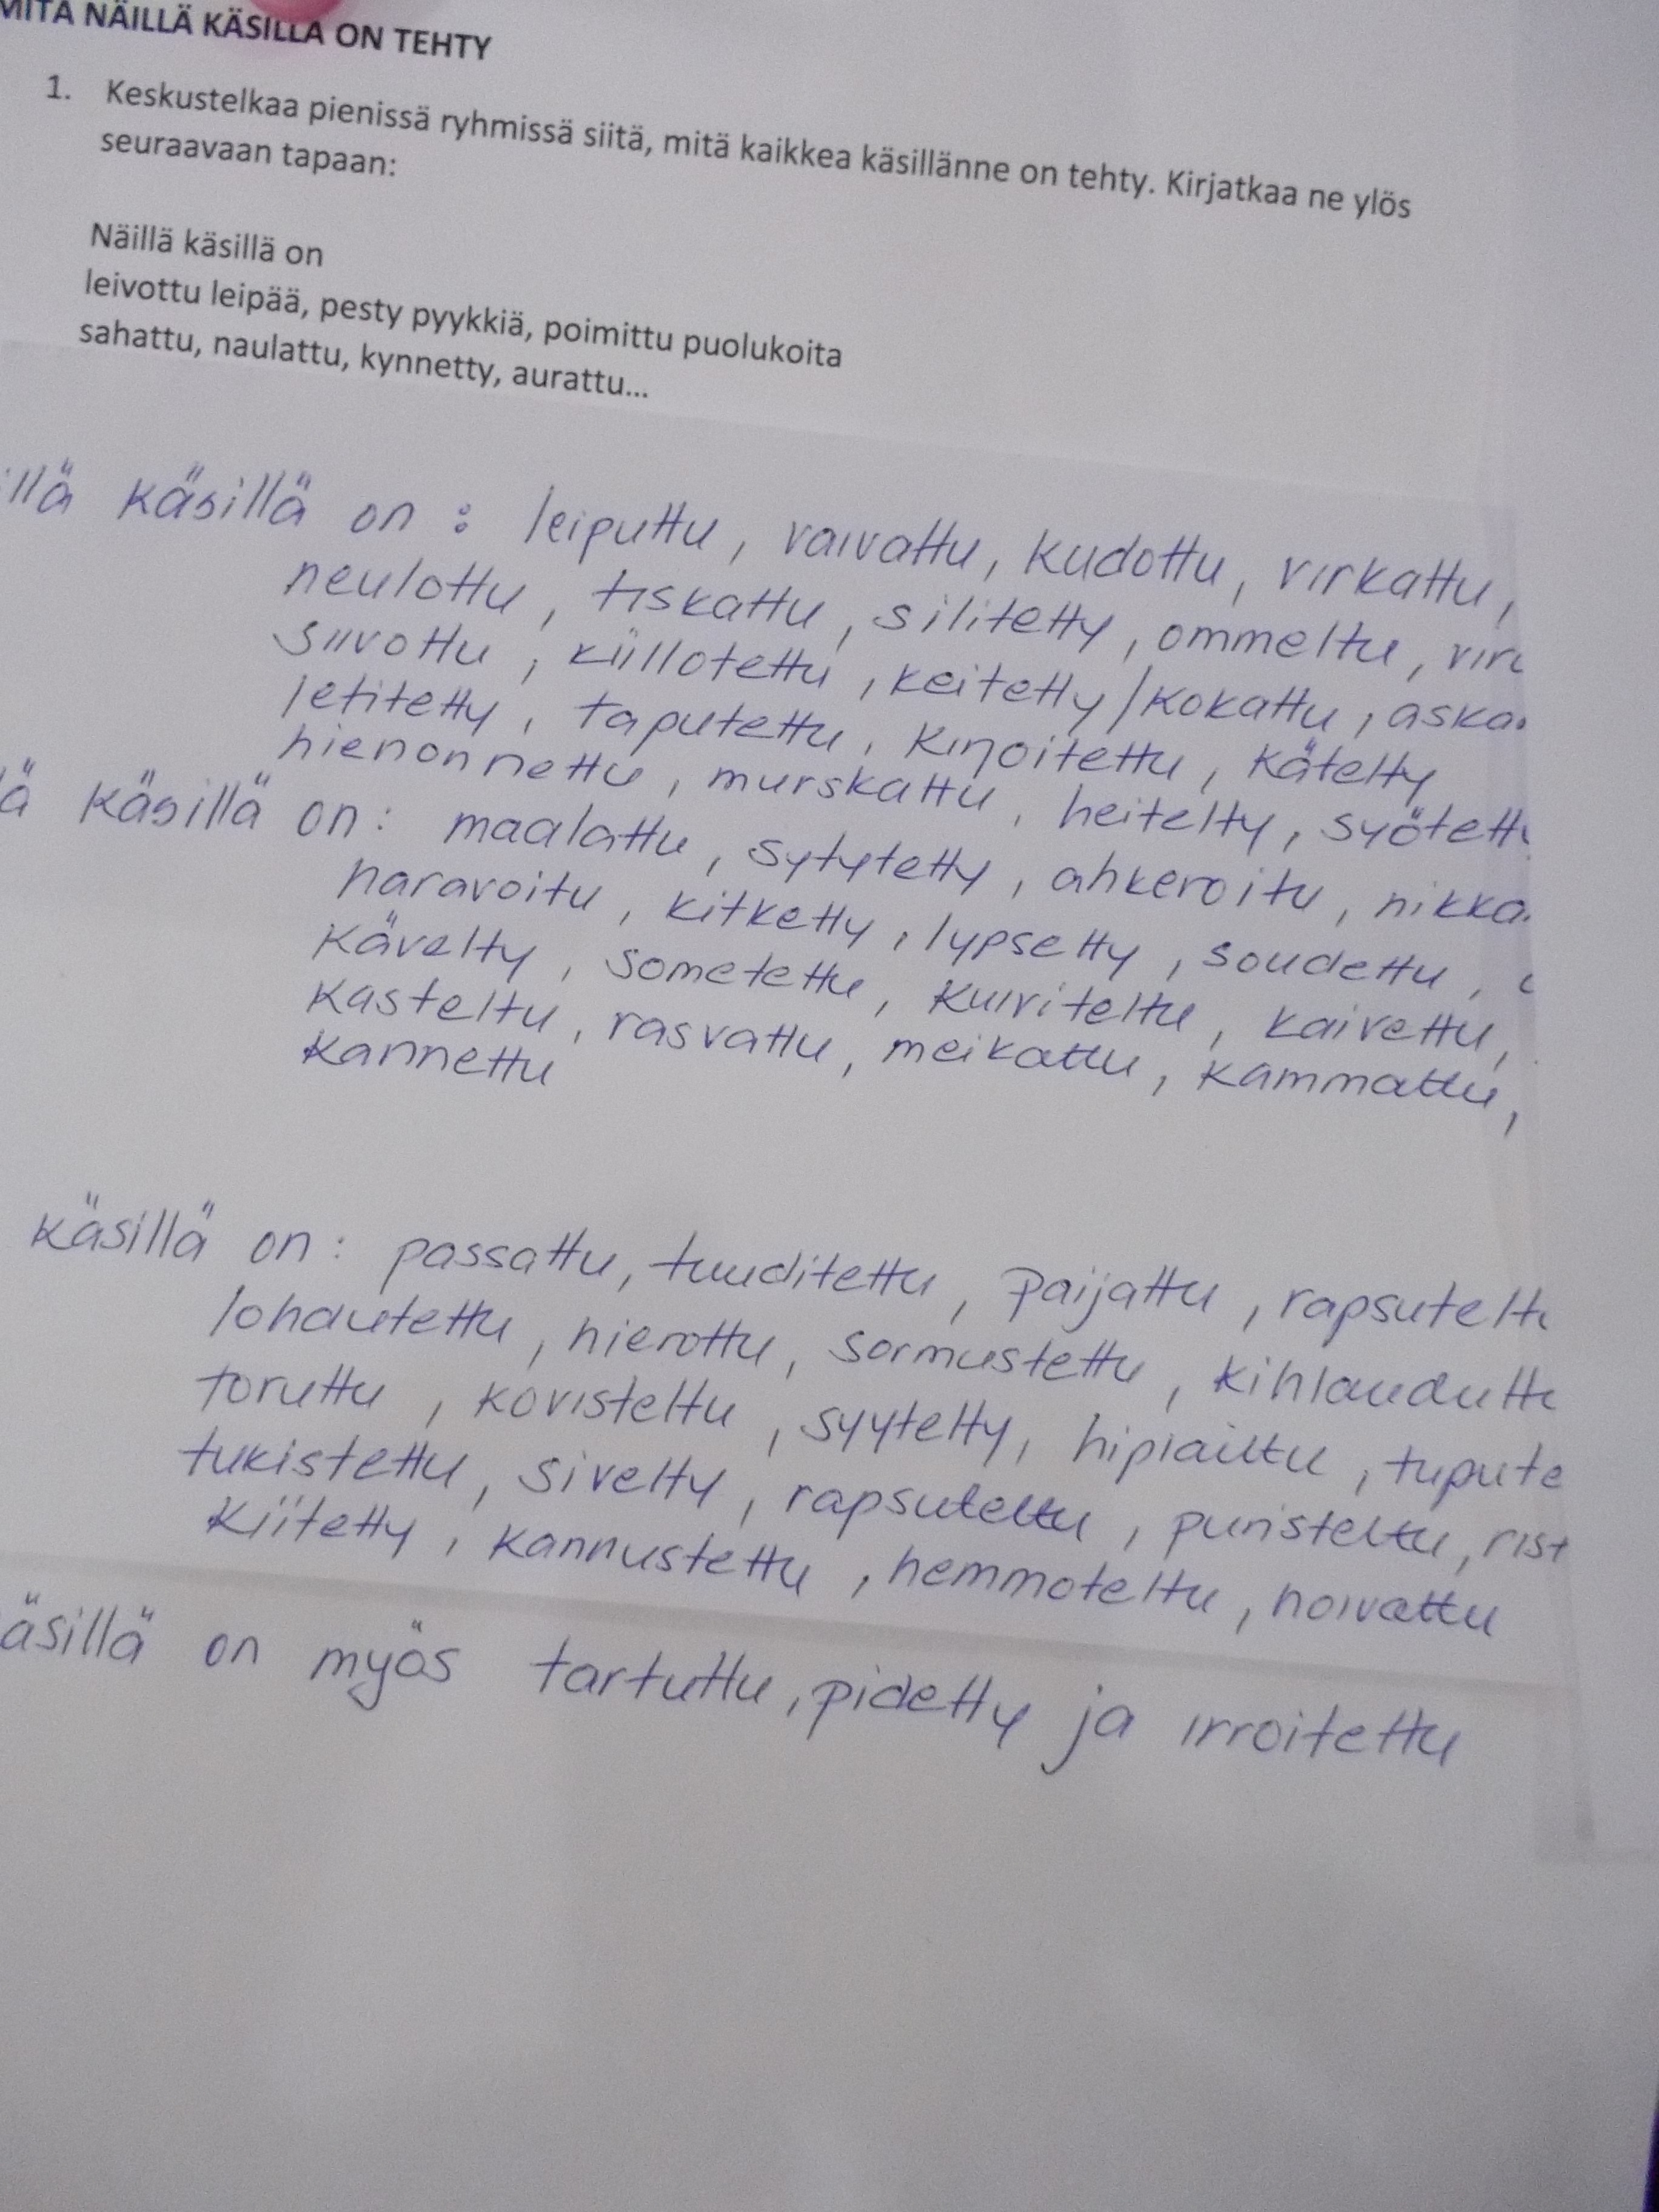 MITÄ NÄILLÄ KÄSILLÄ ON TEHTY
1. Keskustelkaa pienissä ryhmissä siitä, mitä kaikkea käsillänne on tehty. Kirjatkaa ne ylös
seuraavaan tapaan:
Näillä käsillä on
leivottu leipää, pesty pyykkiä, poimittu puolukoita
sahattu, naulattu, kynnetty, aurattu...
illä käsillä on : leiputtu, vaivattu, kudottu, virkattu,
neulottu, tiskattu, silitetty, ommeltu,
siivottu, kiillotettu, keitetty/kokattu, aska
letitetty, taputettu, kirjoitettu, kätelty
hienonnettu, murskattu, heitelty, syötetty
ä käsillä on: maalattu, sytytetty, ahkeroitu, nikka
haravoitu, kitketty, lypsetty, soudettu,
kävelty, sometettu, kuiviteltu, kaivettu,
kasteltu, rasvattu, meikattu, kammattu,
kannettu
käsillä on: passattu, tuuditettu, paijattu, rapsutelt
lohdutettu, hierottu, sormustettu, kihlauduttu
toruttu, kovisteltu, syytetty, hipiäilty, tupute
tukistettu, sivelty, rapsuteltu, puristeltu, rist
kiitetty, kannustettu, hemmoteltu, hoivattu
äsillä on myös tartuttu, pidetty ja irroitettu